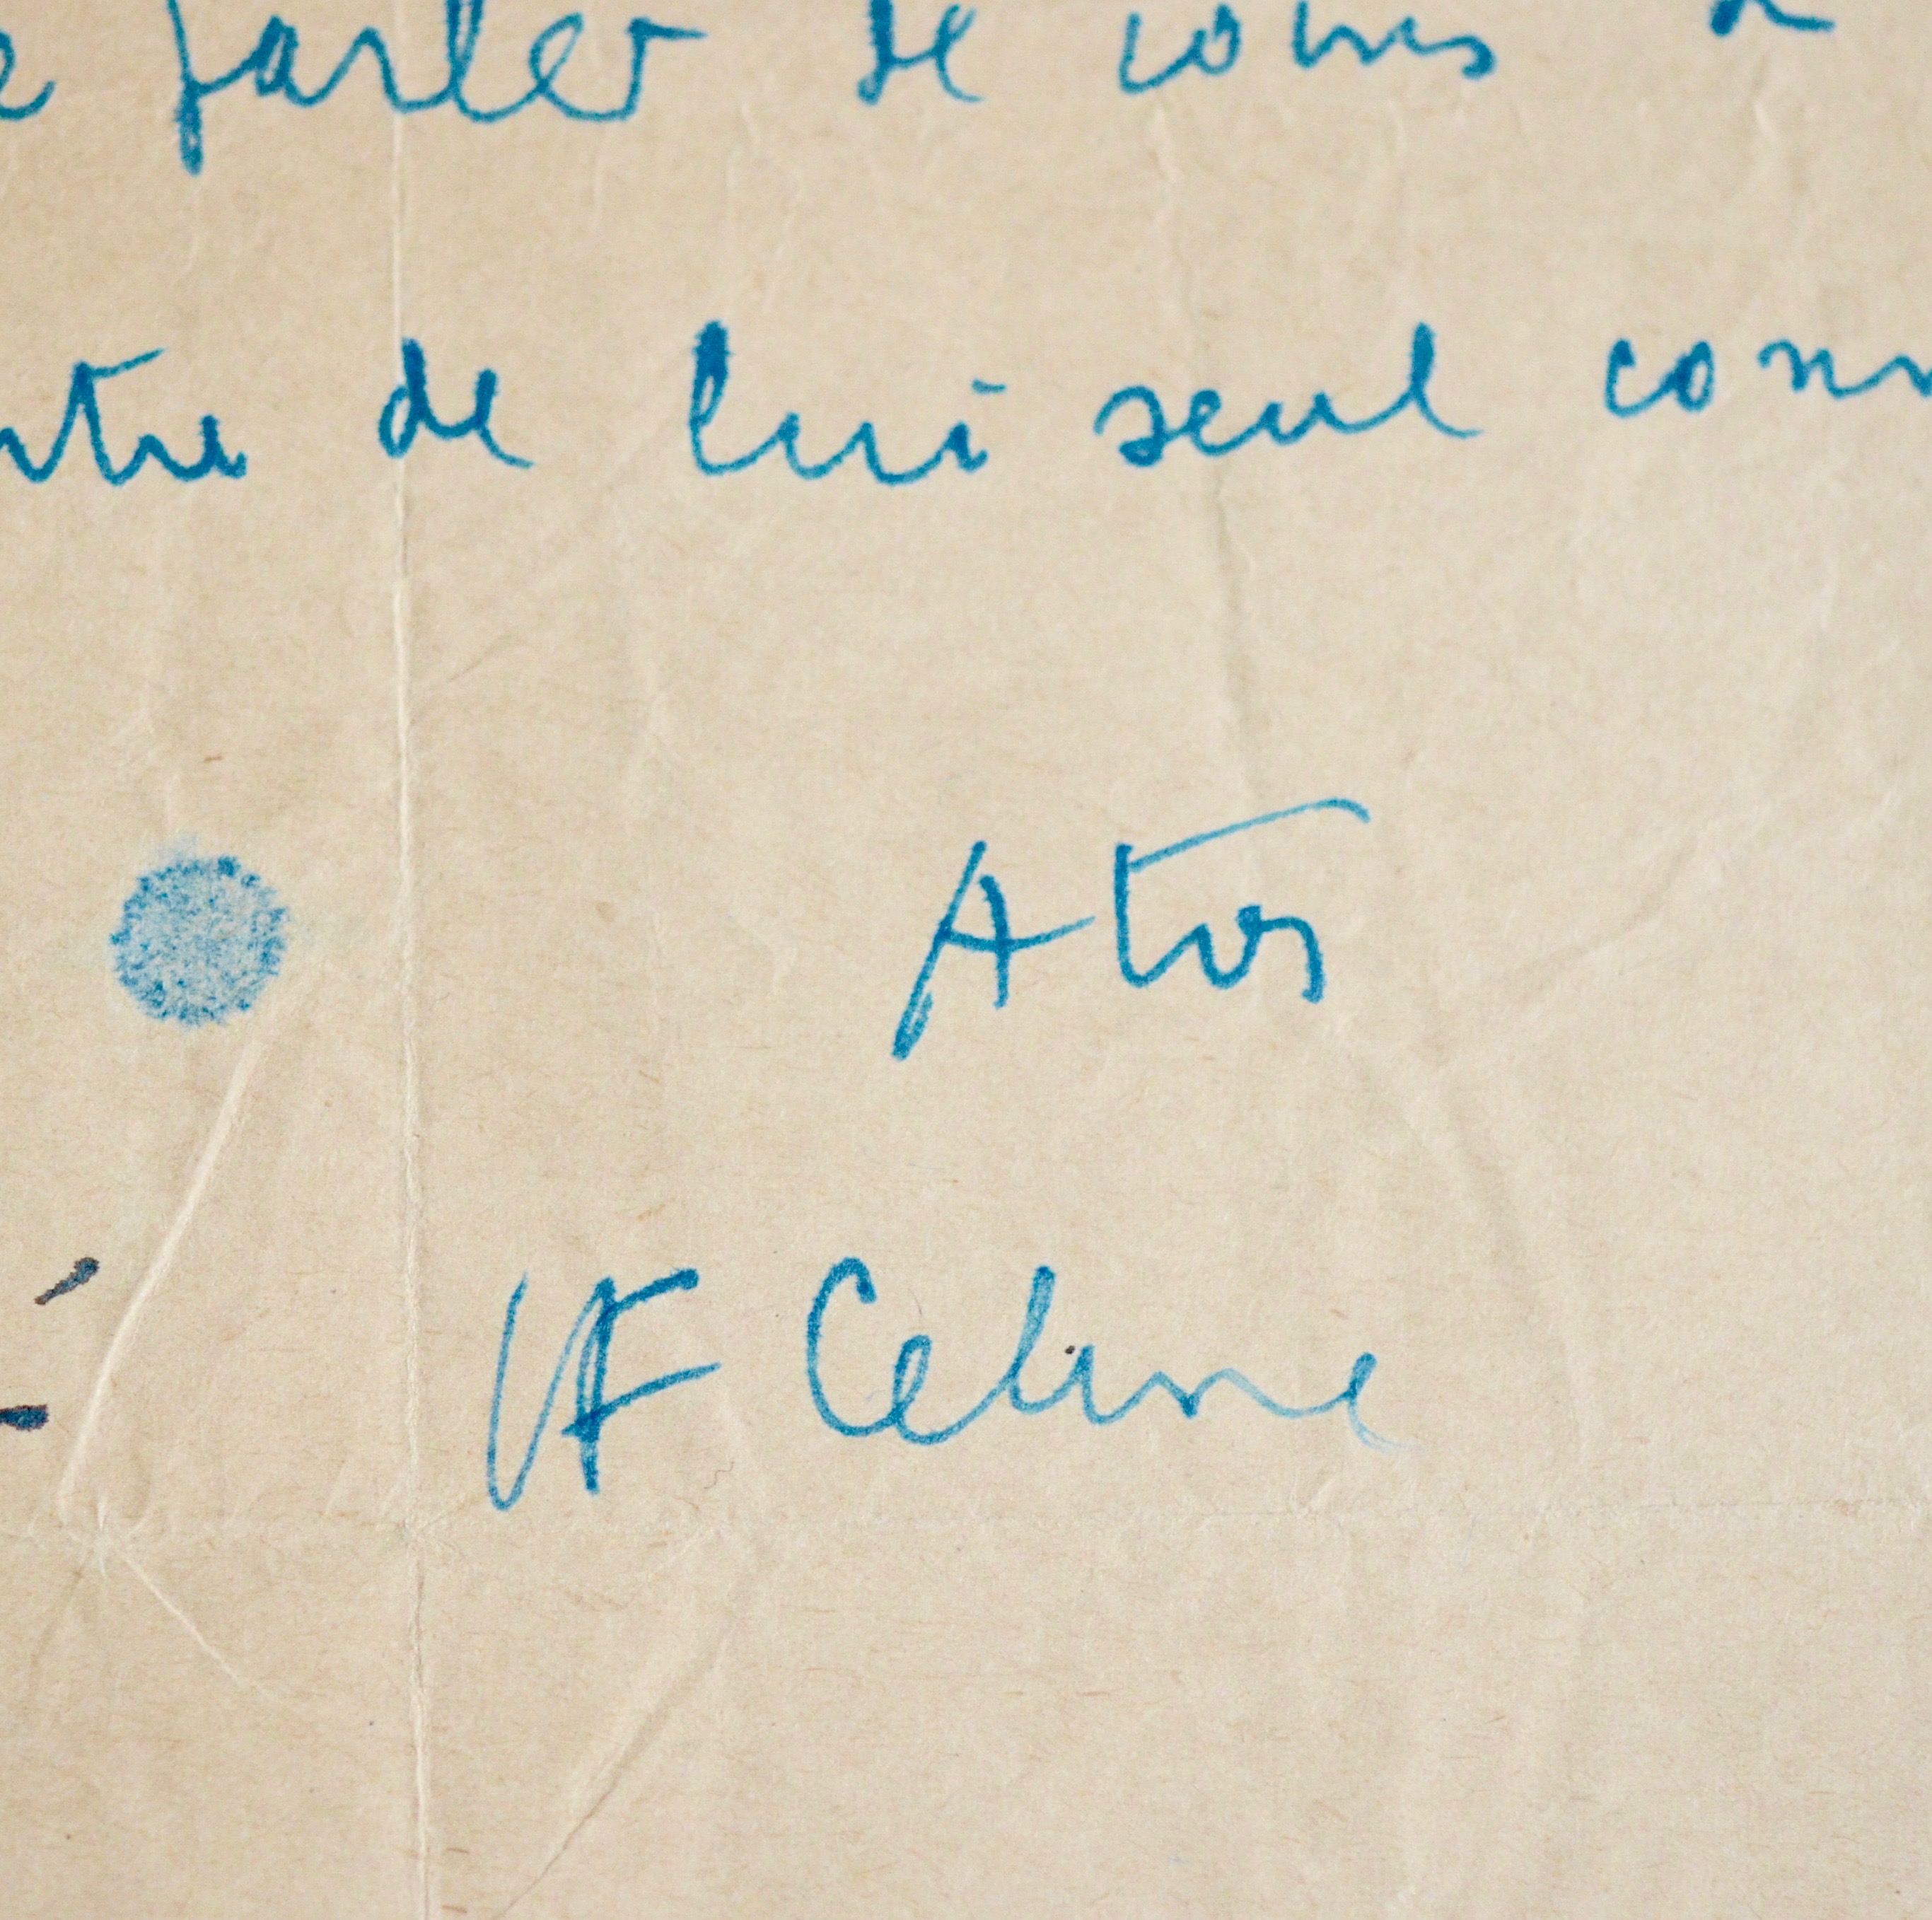 e parler de vous à
ntre de lui seul conn
LF Celine